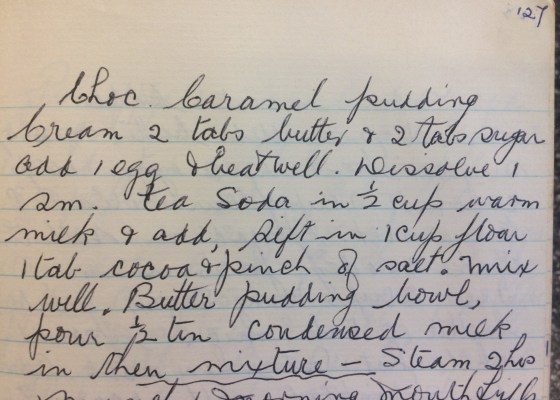 127
Choc. Caramel pudding
Cream 2 tabs butter & 2 tabs sugar
add 1 egg & beat well. Dissolve 1
sm. tea Soda in ½ cup warm
milk & add, Sift in 1 cup flour
1 tab cocoa & pinch of salt. Mix
well. Butter pudding bowl,
pour ½ tin condensed milk
in then mixture — Steam 2 hrs